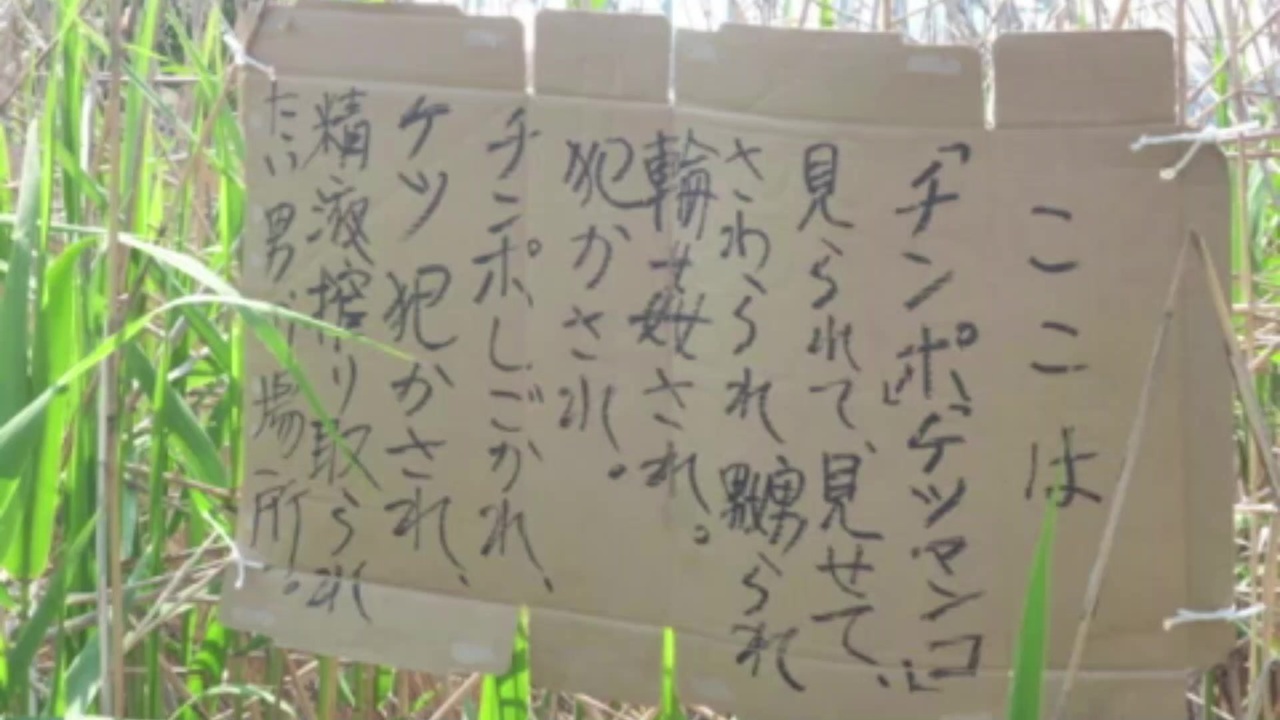 ここは
「チンポ」、「ケツマンコ」
見られて、見せて、
さわられ嬲られ
輪姦され。
犯かされ。
チンポしごかれ、
ケツ犯かされ、
精液搾り取られ
たい男 場所。